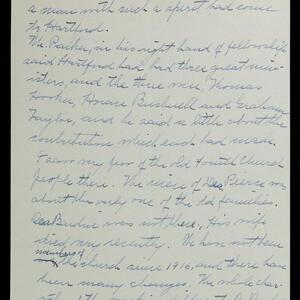 a man with such a spirit had come
to Hartford.
Mr. Parker, in his right hand of fellowship
said Hartford had had three great min-
isters, and the three were Thomas
Hooker, Horace Bushnell and Graham
Taylor, and he said a little about the
contribution which each had made.
I saw very few of the old Fourth Church
people there. The niece of Dea Pierce was
about the only one of the old families.
Dea was not there; His wife
died very recently. We have not been
members of
the church since 1916, and there have
been many changes. The whole char-